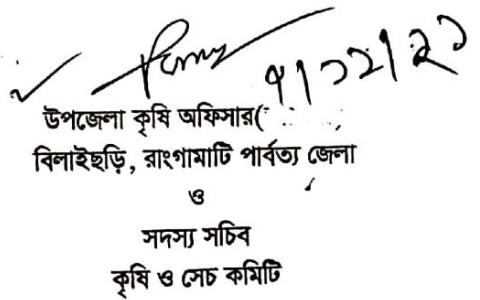 ৭।১২।২১
উপজেলা কৃষি অফিসার(
বিলাইছড়ি, রাংগামাটি পার্বত্য জেলা
ও
সদস্য সচিব
কৃষি ও সেচ কমিটি